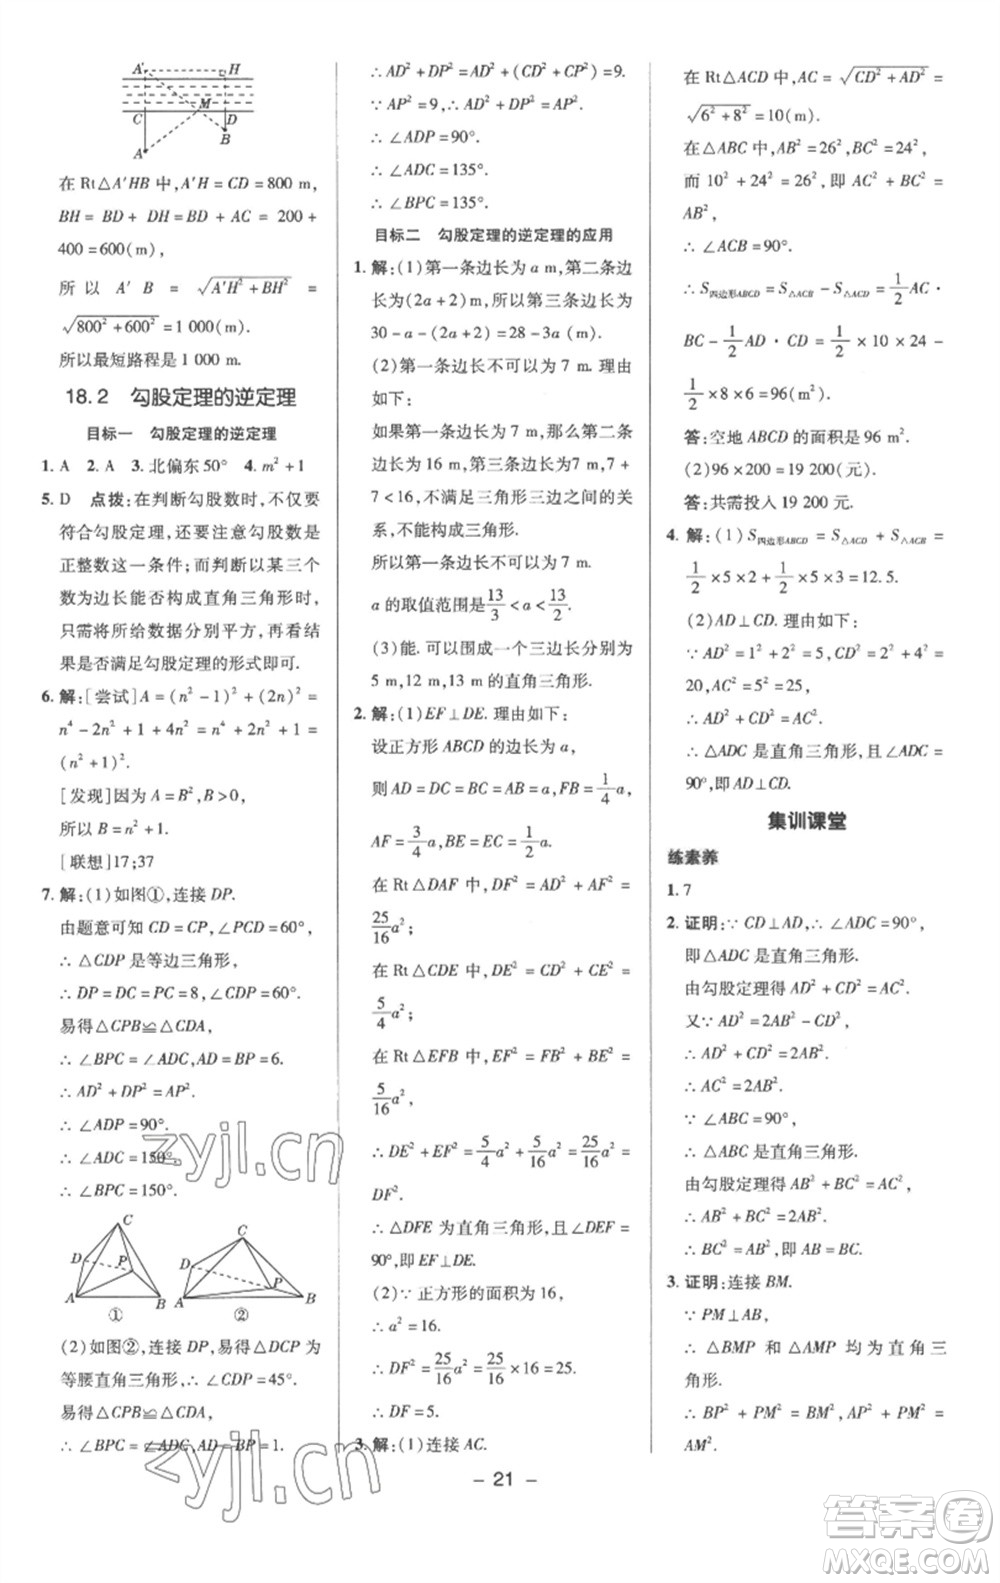 A′ H
M
C D
B
A
在 Rt△A′HB 中,A′H = CD = 800 m,
BH = BD + DH = BD + AC = 200 +
400 = 600(m).
所以 A′B = √(A′H² + BH²) =
√(800² + 600²) = 1 000(m).
所以最短路程是 1 000 m.
18.2 勾股定理的逆定理
目标一 勾股定理的逆定理
1. A 2. A 3. 北偏东 50° 4. m² + 1
5. D 点拨:在判断勾股数时,不仅要
符合勾股定理,还要注意勾股数是
正整数这一条件;而判断以某三个
数为边长能否构成直角三角形时,
只需将所给数据分别平方,再看结
果是否满足勾股定理的形式即可.
6. 解:[尝试]A = (n² − 1)² + (2n)² =
n⁴ − 2n² + 1 + 4n² = n⁴ + 2n² + 1 =
(n² + 1)².
[发现]因为 A = B²,B > 0,
所以 B = n² + 1.
[联想]17;37
7. 解:(1)如图①,连接 DP.
由题意可知 CD = CP,∠PCD = 60°,
∴ △CDP 是等边三角形,
∴ DP = DC = PC = 8,∠CDP = 60°.
易得△CPB≌△CDA,
∴ ∠BPC = ∠ADC,AD = BP = 6.
∴ AD² + DP² = AP².
∴ ∠ADP = 90°.
∴ ∠ADC = 150°.
∴ ∠BPC = 150°.
C
D P
A B
①
C
D P
A B
②
(2)如图②,连接 DP,易得△DCP 为
等腰直角三角形,∠CDP = 45°.
易得△CPB≌△CDA,
∴ ∠BPC = ∠ADC,AD = BP = 1.
∴ AD² + DP² = AD² + (CD² + CP²) = 9.
∵ AP² = 9,∴ AD² + DP² = AP².
∴ ∠ADP = 90°.
∴ ∠ADC = 135°.
∴ ∠BPC = 135°.
目标二 勾股定理的逆定理的应用
1. 解:(1)第一条边长为 a m,第二条边
长为(2a + 2)m,所以第三条边长为
30 − a − (2a + 2) = 28 − 3a(m).
(2)第一条边长不可以为 7 m. 理由
如下:
如果第一条边长为 7 m,那么第二条
边长为 16 m,第三条边长为 7 m,7 +
7 < 16,不满足三角形三边之间的关
系,不能构成三角形.
所以第一条边长不可以为 7 m.
a 的取值范围是 13/3 < a < 13/2.
(3)能. 可以围成一个三边长分别为
5 m,12 m,13 m 的直角三角形.
2. 解:(1)EF⊥DE. 理由如下:
设正方形 ABCD 的边长为 a,
则 AD = DC = BC = AB = a,FB = 1/4 a,
AF = 3/4 a,BE = EC = 1/2 a.
在 Rt△DAF 中,DF² = AD² + AF² =
25/16 a²;
在 Rt△CDE 中,DE² = CD² + CE² =
5/4 a²;
在 Rt△EFB 中,EF² = FB² + BE² =
5/16 a²,
∴ DE² + EF² = 5/4 a² + 5/16 a² = 25/16 a² =
DF².
∴ △DFE 为直角三角形,且∠DEF =
90°,即 EF⊥DE.
(2)∵ 正方形的面积为 16,
∴ a² = 16.
∴ DF² = 25/16 a² = 25/16 × 16 = 25.
∴ DF = 5.
3. 解:(1)连接 AC.
在 Rt△ACD 中,AC = √(CD² + AD²) =
√(6² + 8²) = 10(m).
在△ABC 中,AB² = 26²,BC² = 24²,
而 10² + 24² = 26²,即 AC² + BC² =
AB²,
∴ ∠ACB = 90°.
∴ S四边形ABCD = S△ACB − S△ACD = 1/2 AC ·
BC − 1/2 AD · CD = 1/2 × 10 × 24 −
1/2 × 8 × 6 = 96(m²).
答:空地 ABCD 的面积是 96 m².
(2)96 × 200 = 19 200(元).
答:共需投入 19 200 元.
4. 解:(1)S四边形ABCD = S△ACD + S△ACB =
1/2 × 5 × 2 + 1/2 × 5 × 3 = 12.5.
(2)AD⊥CD. 理由如下:
∵ AD² = 1² + 2² = 5,CD² = 2² + 4² =
20,AC² = 25,
∴ AD² + CD² = AC².
∴ △ADC 是直角三角形,且∠ADC =
90°,即 AD⊥CD.
集训课堂
练素养
1. 7
2. 证明:∵ CD⊥AD,∴ ∠ADC = 90°,
即△ADC 是直角三角形.
由勾股定理得 AD² + CD² = AC².
又∵ AD² = 2AB² − CD²,
∴ AD² + CD² = 2AB².
∴ AC² = 2AB².
∵ ∠ABC = 90°,
∴ △ABC 是直角三角形.
由勾股定理得 AB² + BC² = AC²,
∴ AB² + BC² = 2AB².
∴ BC² = AB²,即 AB = BC.
3. 证明:连接 BM.
∵ PM⊥AB,
∴ △BMP 和△AMP 均为直角三
角形.
∴ BP² + PM² = BM²,AP² + PM² =
AM².
− 21 −
zyjl.cn
zyjl.cn
答案圈
MXQE.COM